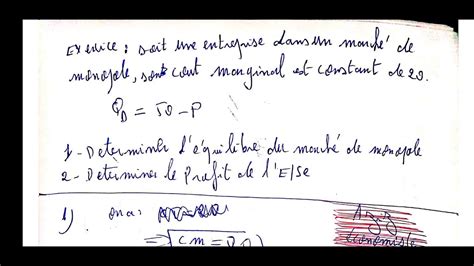 Exercice : soit une entreprise dans un marché de
monopole, sont cout marginal est constant de 20.
Q_D = 50 - P
1 - Determiner l'équilibre du marché de monopole
2 - Determiner le Profit de l'E/Se
1) on a :
=> Cm = 20
Aziz
économiste